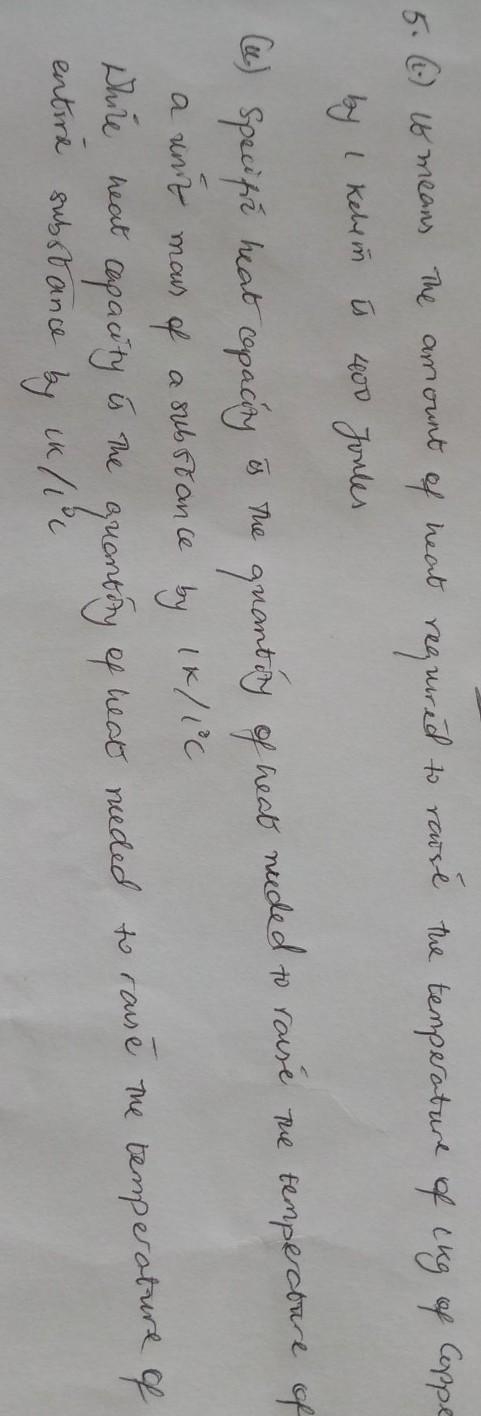 5. (i.) It means the amount of heat required to raise the temperature of 1kg of Coppe
by 1 Kelvin is 400 Joules
(ii) Specific heat capacity is the quantity of heat needed to raise the temperature of
a unit mass of a substance by 1K/1°C
While heat capacity is the quantity of heat needed to raise the temperature of
entire substance by 1K/1°C